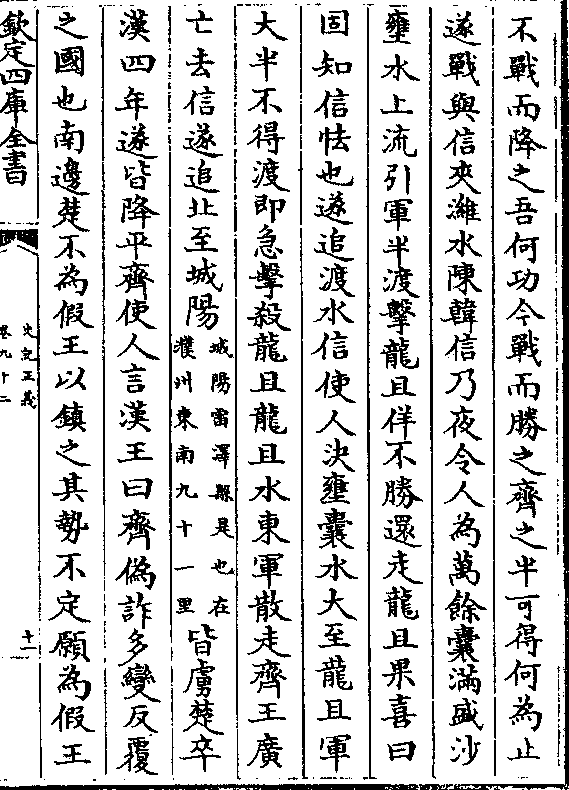 不戰而降之吾何功今戰而勝之齊之半可得何為止
遂戰與信夾濰水陳韓信乃夜令人為萬餘囊滿盛沙
壅水上流引軍半渡擊龍且佯不勝還走龍且果喜曰
固知信怯也遂追渡水信使人決壅囊水大至龍且軍
大半不得渡即急擊殺龍且龍且水東軍散走齊王廣
亡去信遂追北至城陽城陽雷澤縣是也在濮州東南九十一里皆虜楚卒
漢四年遂皆降平齊使人言漢王曰齊偽詐多變反覆
之國也南邊楚不為假王以鎮之其勢不定願為假王
欽定四庫全書
史記正義
卷九十二
十一